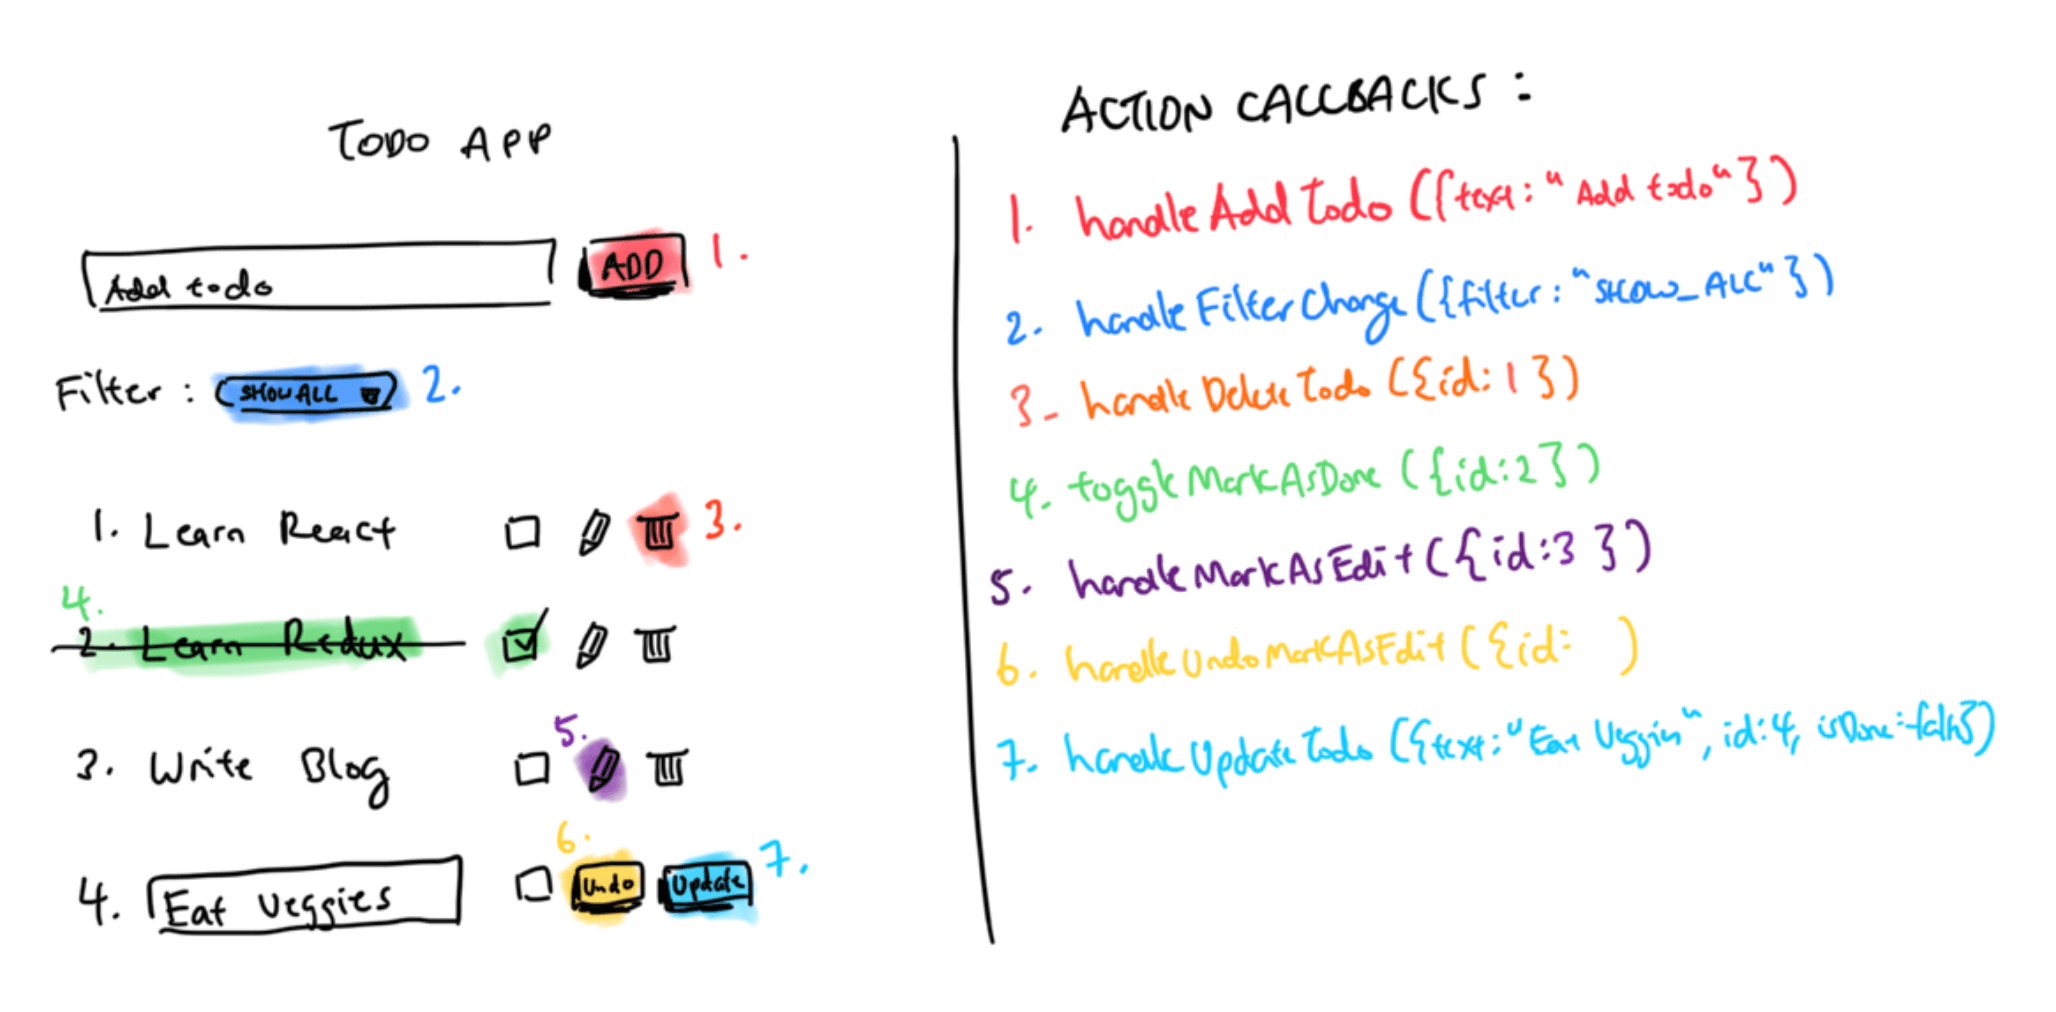 TODO APP
Add todo
ADD
1.
Filter :
SHOW ALL
2.
1. Learn React
3.
4.
2. Learn Redux
5.
3. Write Blog
6.
4. Eat Veggies
Undo
Update
7.
ACTION CALLBACKS :
1. handleAddTodo ({text: "Add todo"})
2. handleFilterChange ({filter: "SHOW_ALL"})
3- handleDeleteTodo ({id: 1 })
4. toggleMarkAsDone ({id:2})
5. handleMarkAsEdit ({id:3 })
6. handleUndoMarkAsEdit ({id: )
7. handleUpdateTodo ({text: "Eat Veggies", id:4, isDone:false})